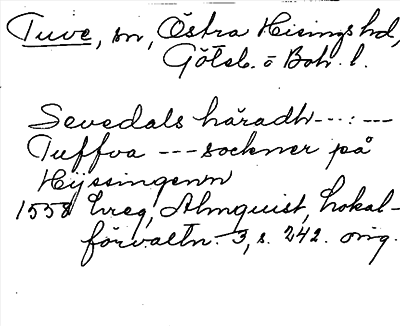 Tuve, sn, Östra Hisings hd,
Göteb. o Boh. l.
Sevedals häradh ---:---
Tuffva --- sockner på
Hijssingenn
1558 Lreg, Almquist, Lokal-
förvaltn. 3, s. 242. orig.